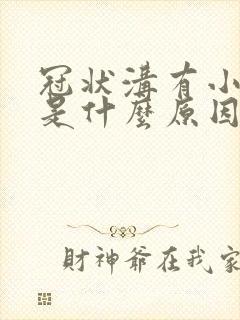 冠狀溝有小
是什麼原因
財神爺在我家